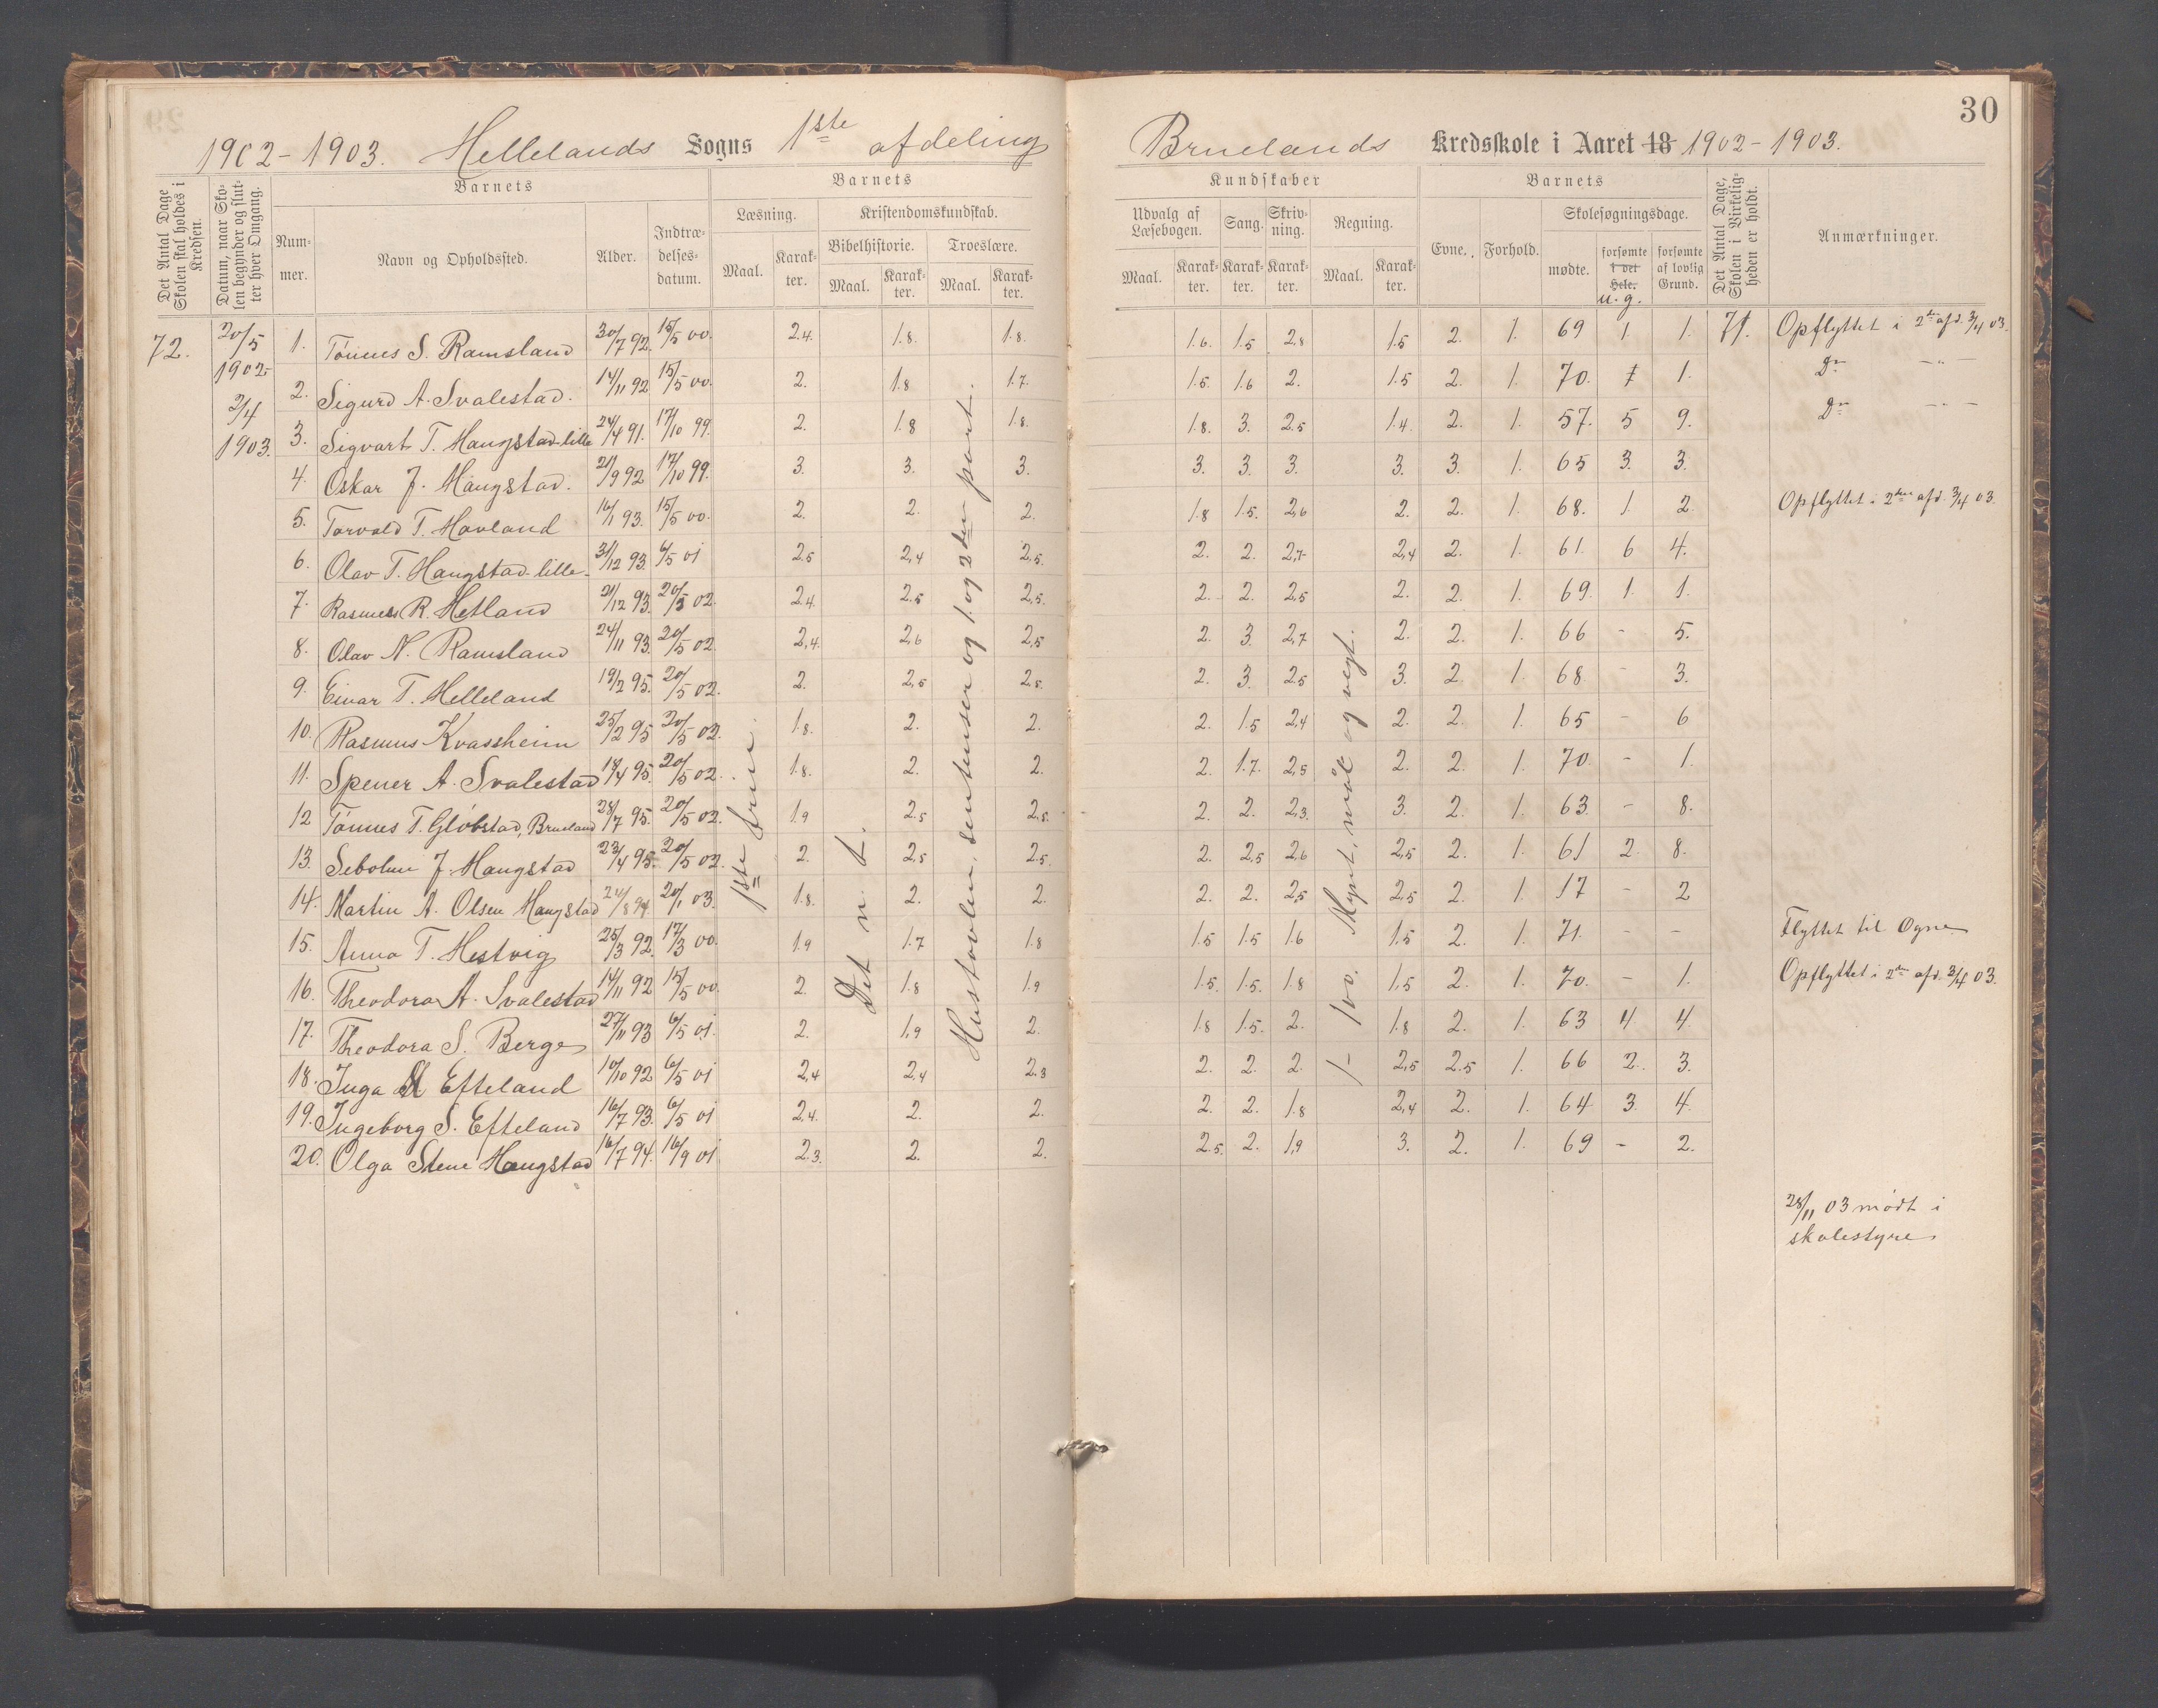 30
1902-1903. Hellelands Sogns 1ste afdeling
Bruelands Kredsskole i Aaret 18 1902-1903.
Det Antal Dage Skolen skal holdes i Kredsen.
Datum, naar Skolen begynder og slutter hver Omgang.
Barnets
Nummer.
Navn og Opholdssted.
Alder.
Indtrædelsesdatum.
Barnets
Læsning.
Maal.
Karakter.
Kristendomskundskab.
Bibelhistorie.
Maal.
Karakter.
Troeslære.
Maal.
Karakter.
Kundskaber
Udvalg af Læsebogen.
Maal.
Karakter.
Sang.
Karakter.
Skrivning.
Karakter.
Regning.
Maal.
Karakter.
Barnets
Evne.
Forhold.
Skolesøgningsdage.
mødte.
forsømte i det Hele. u.g.
forsømte af lovlig Grund.
Det Antal Dage, Skolen i Virkeligheden er holdt.
Anmærkninger.
72.
20/5 1902-
2/4 1903.
1. Tønnes S. Ramsland 30/7 92. 15/5 00. 2.4. 1.8. 1.8. 1.6. 1.5 2.8 1.5 2. 1. 69 1 1. 71. Opflyttet i 2den afd. 3/4 03.
2. Sigurd A. Svalestad. 14/11 92 15/5 00. 2. 1.8 1.7. 1.5. 1.6 2. 1.5 2. 1. 70. 1 1. Do -"-
3. Sigvart T. Haugstad-lille 24/4 91. 17/10 99. 2. 1.8 1.8. 1.8. 3. 2.5 1.4. 2. 1. 57. 5 9. Do -"-
4. Oskar J. Haugstad. 21/9 92 17/10 99. 3. 3. 3. 3. 3. 3. 3. 3. 1. 65 3. 3.
5. Torvald T. Hovland 16/1 93. 15/5 00. 2. 2. 2. 1.8 1.5. 2,6 2. 2. 1. 68. 1. 2. Opflyttet i 2den afd. 3/4 03.
6. Olav T. Haugstad-lille- 31/12 93. 6/5 01 2.5 2,4 2,5. 2. 2. 2,7- 2,4 2. 1. 61. 6 4.
7. Rasmus R. Hetland 21/12 93. 20/5 02. 2.4. 2.5 2,5. 2. 2. 2,5 2. 2. 1. 69. 1. 1.
8. Olav N. Ramsland 24/11 93. 20/5 02. 2,4. 2,6 2,5 2. 3. 2,7 2. 2. 1. 66 - 5.
9. Einar T. Helleland 19/2 95. 20/5 02. 2. 2,5 2,5. 2. 3. 2.5 3. 2. 1. 68. - 3.
10. Rasmus Kvassheim 25/2 95 20/5 02. 1.8. 2. 2. 2. 1.5 2,4 2. 2. 1. 65 - 6
11. Spener A. Svalestad 18/4 95. 20/5 02. 1.8. 2. 2. 2. 1.7. 2,5 2. 2. 1. 70. - 1.
12 Tønnes T. Gløbstad, Brueland 28/7 95. 20/5 02. 1.9 2.5 2,5. 2. 2. 2,3. 3. 2. 1. 63. - 8.
13. Sebolme J. Haugstad 23/4 95. 20/5 02. 2. 2,5 2.5. 2. 2,5 2,6 2,5 2. 1. 61 2. 8.
14. Martin A. Olsen Haugstad 24/8 94 20/1 03. 1.8. 2. 2. 2. 2. 2,5 2,5 2. 1. 17 - 2
15. Anna T. Hestvig 25/3 92. 17/3 00. 1.9 1.7 1.8 1.5 1.5 1.6 1.5 2. 1. 71. - - Flyttet til Ogne
16. Theodora A. Svalestad 14/11 92 15/5 00. 2. 1.8 1.9 1.5. 1.5. 1.8 1,5 2. 1. 70. - 1. Opflyttet i 2den afd. 3/4 03.
17. Theodora S. Berge 27/11 93 6/5 01. 2. 1,9 2. 1.8 1.5. 2. 1.8 2. 1. 63 4 4.
18. Inga M Efteland 10/10 92 6/5 01 2,4 2,4 2.3 2. 2. 2. 2,5 2.5 1. 66 2. 3.
19. Ingeborg S. Efteland 16/7 93. 6/5 01 2,4. 2. 2. 2. 2. 1.8 2,4 2. 1. 64 3. 4.
20. Olga Stene Haugstad 16/7 94. 16/9 01 2.3. 2. 2. 2.5. 2. 1,9 3. 2. 1. 69 - 2.
1ste trin.
Det n. t.
Hustavlen, sentenser og 1. og 2den part.
1 - 100. Mynt, mål og vegt.
28/11 03 mødt i
skolestyre